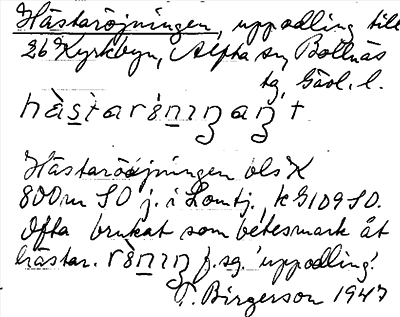 Hästaröjningen, uppodling till
26 Kyrkbyn, Alfta sn, Bollnäs
tg, Gävl. l.
Hästaröjningen obs K
800 m SO j. i Lomtj., kG109 SO.
Ofta brukat som betesmark åt
hästar. f. sg 'uppodling'.
T. Birgerson 1947